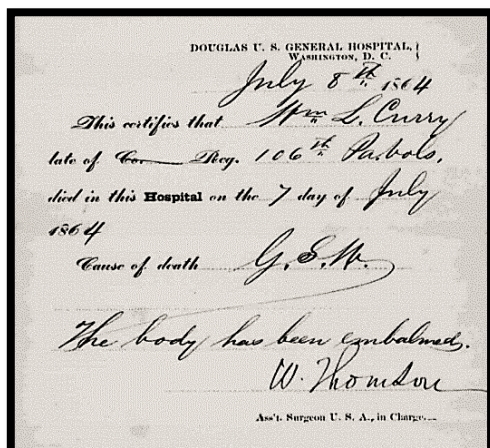 DOUGLAS U. S. GENERAL HOSPITAL,
WASHINGTON, D. C.
July 8th 1864
This certifies that Wm L. Curry
late of Co. Reg. 106th Pa. Vols.
died in this Hospital on the 7 day of July
1864
Cause of death G. S. W.
The body has been embalmed.
W. Thomson
Ass't. Surgeon U. S. A., in Charge.